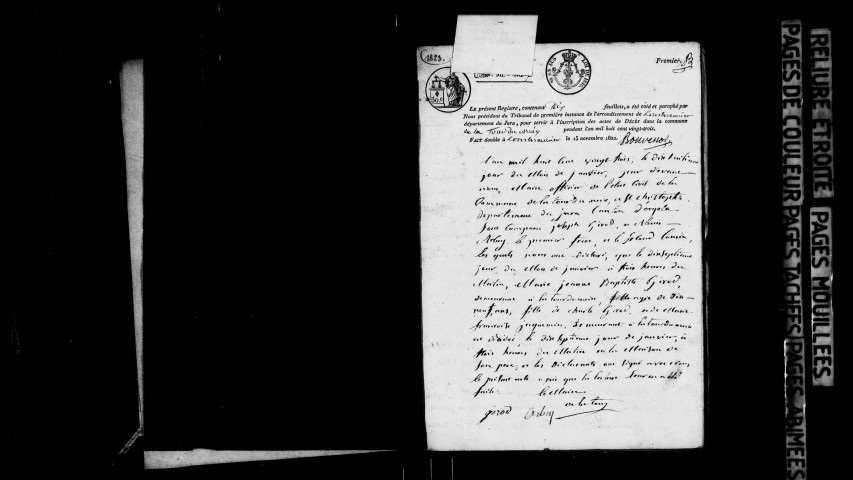 1823.
Premier.
Le présent Registre, contenant six feuillets, a été coté et paraphé par
Nous président du Tribunal de première instance de l'arrondissement de Lonslesaunier
département du Jura, pour servir à l'inscription des actes de Décès dans la commune
de la Tour du meix pendant l'an mil huit cent vingt-trois.
Fait double à Lonslesaunier le 15 novembre 1822.
L'an mil huit cent vingt trois, le dix huitieme
jour du Mois de janvier, par devant
nous, Maire officier de l'état Civil de la
Commune de la tour du meix, et St christophe
departement du jura Canton d'orgelet
Sont Comparu joseph Girod, et
le premier frere, et le Second Cousin,
les quels nous ont déclaré, que le dixseptieme
jour du Mois de janvier à trois heures du
Matin, Marie jeanne Baptiste Girod,
demeurant à la tour du meix, agée de dix
neuf ans, fille de charle Girod, et de Marie
françoise jacquemin, demeurant à la tour du meix
est décédé le dixseptieme jour de janvier, à
trois heures du Matin en la Maison de
Son pere, et les Déclarants ont signé avec nous
le présent acte après que la lecture leur en a été
faite. le Maire
girod
RELIURE ETROITE PAGES MOUILLEES
PAGES DE COULEUR PAGES TACHEES PAGES ABIMEES